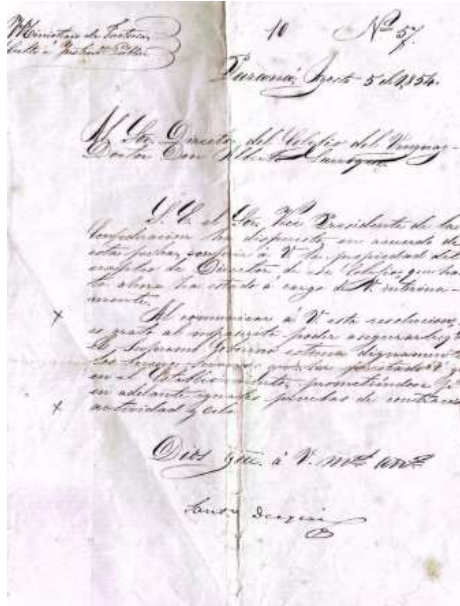 Ministerio de Justicia
Culto é Instruccion Publica
10 Nº 57.
Paraná, Agosto 5 de 1854.
Al Sor. Director del Colegio del Uruguay
Doctor Don Alberto Larroque.
S. E. el Sor. Vice Presidente de la
Confederacion ha dispuesto en acuerdo de
esta fecha, conferir á V. la propiedad del
empleo de Director de ese Colegio, que has-
ta ahora ha estado á cargo de V. interina-
mente.
Al comunicar á V. esta resolucion,
es grato al infrascripto poder asegurarle q.
El Supremo Gobierno estima dignamente
los que ha prestado V.
en el Establecimiento, prometiendose q.
en adelante iguales pruebas de contraccion
actividad y celo.
Dios gue. á V. ms. as.